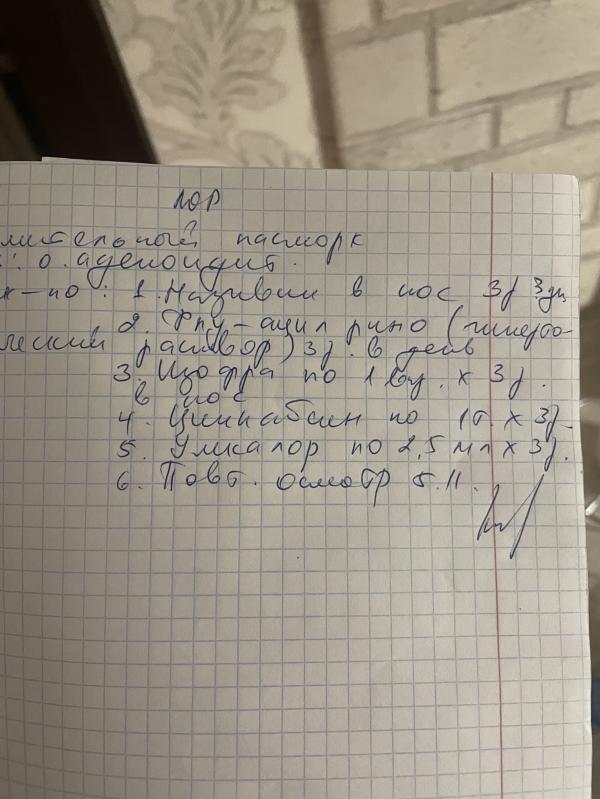 ЛОР
лительный насморк
: о. аденоидит.
к-но: 1. Називин в нос 3 р 3 дн
2. Флу-ацил рино (гиперто-
ческий раствор) 3 р. в день
3. Изофра по 1 впр. х 3 р.
в нос
4. Циннабсин по 1 т. х 3 р.
5. Умкалор по 2,5 мл х 3 р.
6. Повт. осмотр 5.11.